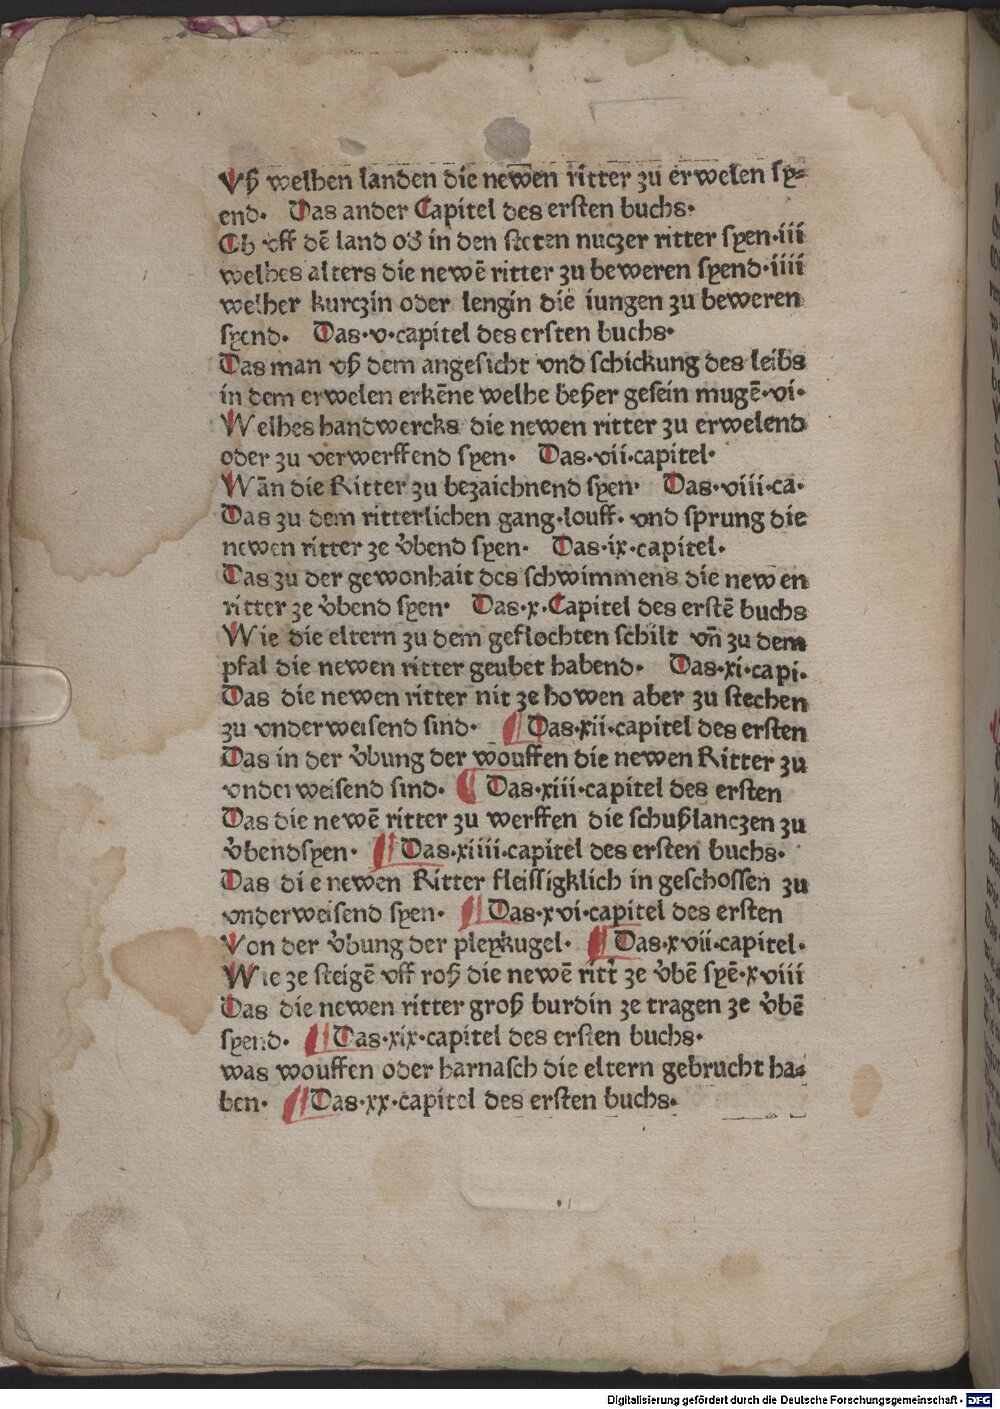 Vß welhen landen die newen ritter zu erwelen sy⸗
end. Das ander Capitel des ersten buchs.
Ob vff dē land od' in den steten nuczer ritter syen.iii
welhes alters die newē ritter zu beweren syend.iiii
welher kurczin oder lengin die iungen zu beweren
syend. Das.v.capitel des ersten buchs.
Das man vß dem angesicht vnd schickung des leibs
in dem erwelen erkēne welhe beßer gesein mugē.vi.
Welhes handwercks die newen ritter zu erwelend
oder zu verwerffend syen. Das.vii.capitel.
Wān die Ritter zu bezaichnend syen. Das.viii.ca.
Das zu dem ritterlichen gang.louff. vnd sprung die
newen ritter ze vͤbend syen. Das.ix.capitel.
Das zu der gewonhait des schwimmens die newen
ritter ze vͤbend syen. Das.x.Capitel des erstē buchs
Wie die eltern zu dem geflochten schilt vn̄ zu dem
pfal die newen ritter geubet habend. Das.xi.capi.
Das die newen ritter nit ze howen aber zu stechen
zu vnderweisend sind. ¶ Das.xii.capitel des ersten
Das in der vͤbung der wouffen die newen Ritter zu
vnderweisend sind. ¶ Das.xiii.capitel des ersten
Das die newē ritter zu werffen die schußlanczen zu
vͤbendsyen. ¶ Das.xiiii.capitel des ersten buchs.
Das die newen Ritter fleissigklich in geschossen zu
vnderweisend syen. ¶ Das.xvi.capitel des ersten
Von der vͤbung der pleykugel. ¶ Das.xvii.capitel.
Wie ze steigē vff roß die newē ritt' ze vͤbē syē.xviii
Das die newen ritter groß burdin ze tragen ze vͤbē
syend. ¶ Das.xix.capitel des ersten buchs.
was wouffen oder harnasch die eltern gebrucht ha⸗
ben. ¶ Das.xx.capitel des ersten buchs.
Digitalisierung gefördert durch die Deutsche Forschungsgemeinschaft - DFG